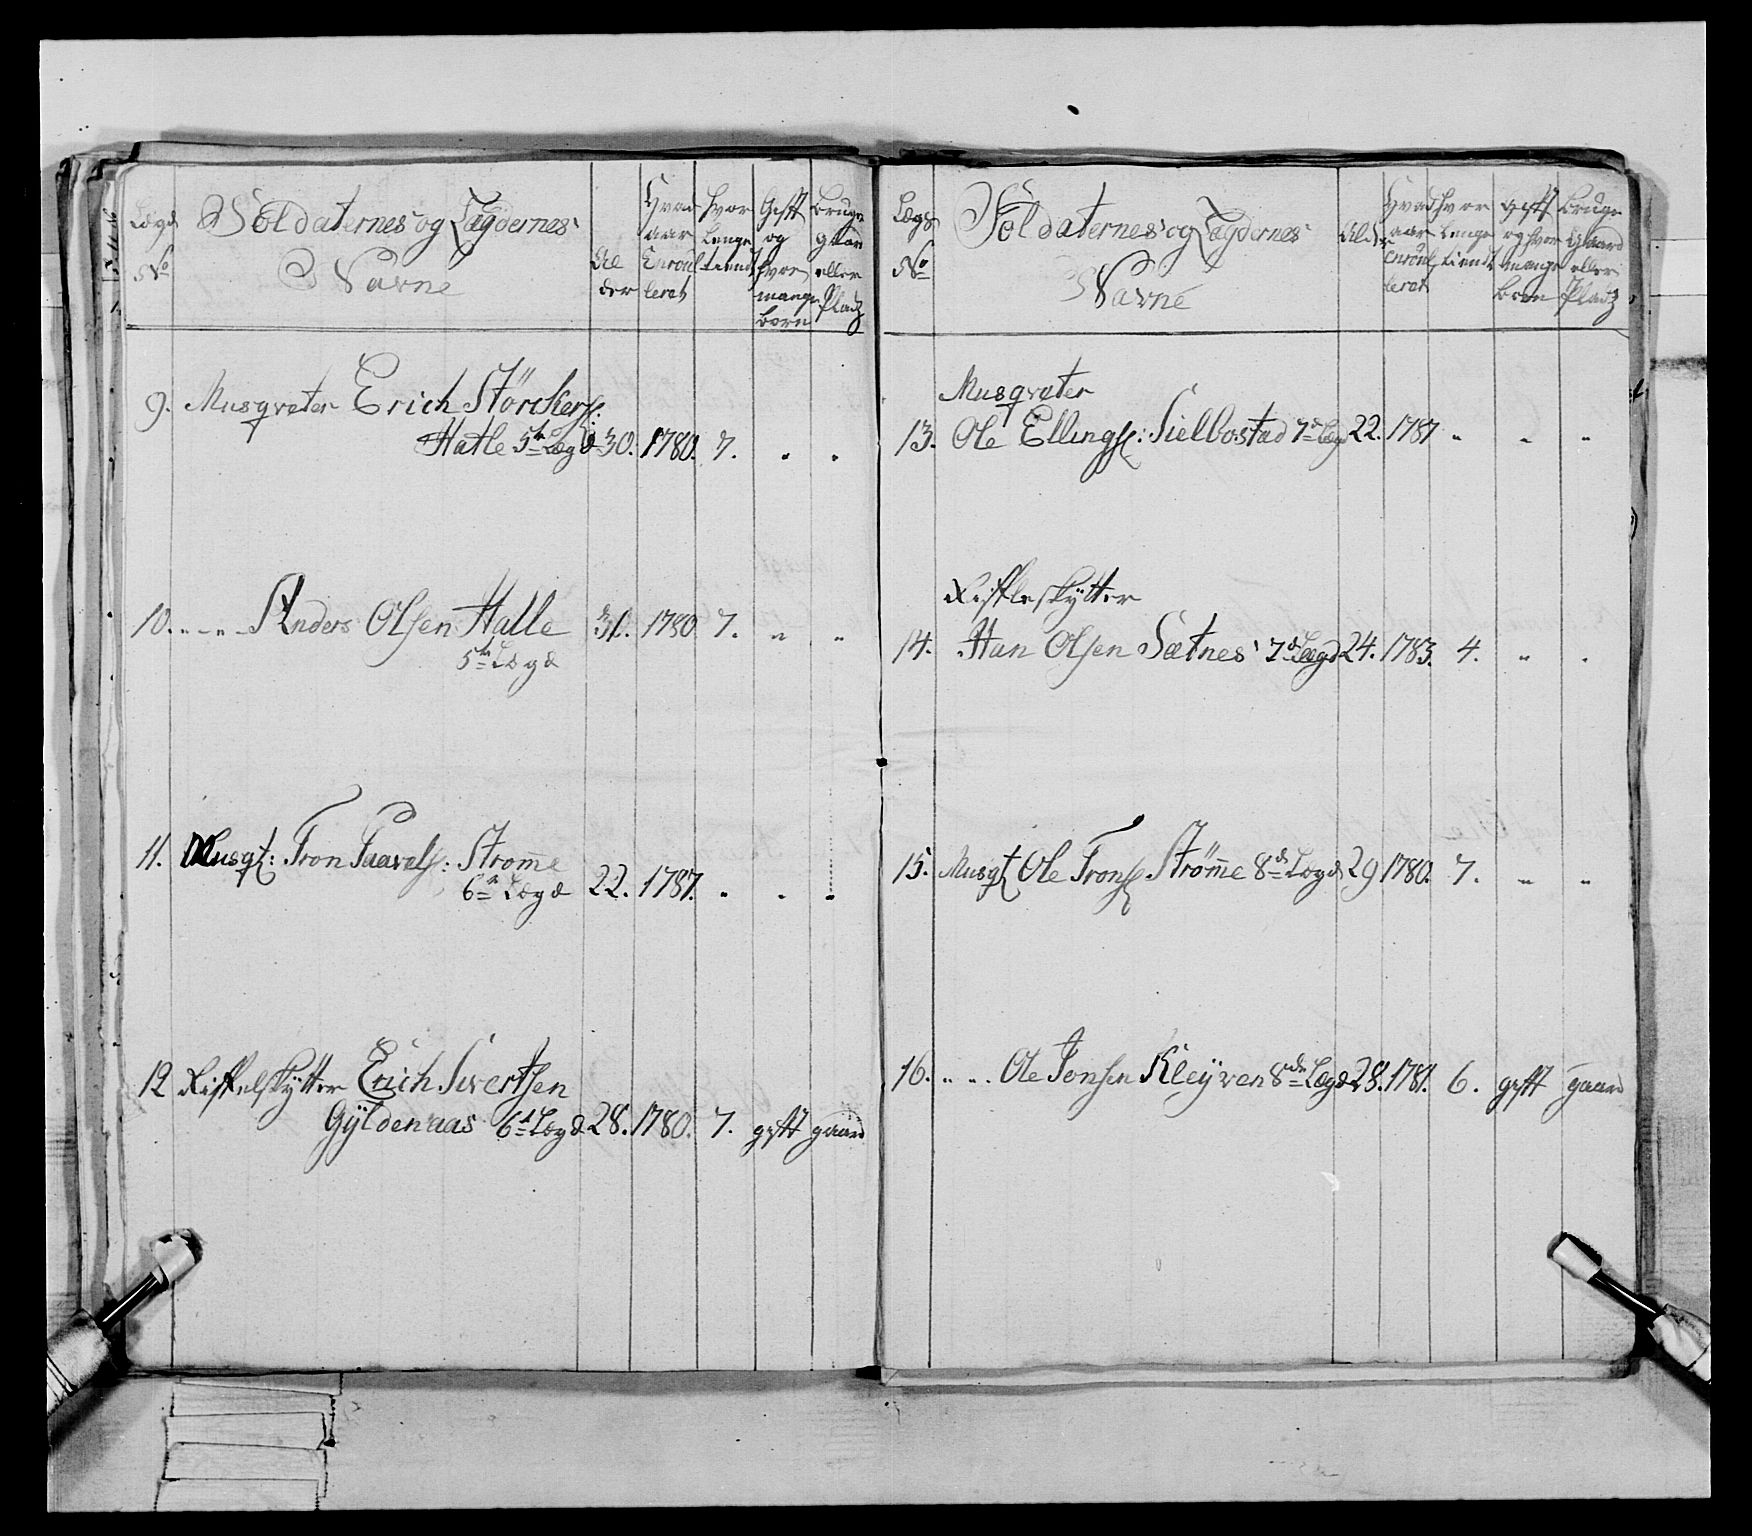 Lægd
No
Soldaternes og Lægdernes
Navne
Al
der
Hvad
aar
Enroul
leret
hvor
lenge
tient
Gift
og
hvor
mange
born
bruge
gaard
eller
Platz
9. Musqveter Erich Störckers:
Hatle 5te Lægd 30. 1780. 7. . .
10. " - " - Anders Olsen Hatle 31. 1780 7. " "
5te Lægd
11. Musqt: Tron Paavels: Strom̄e
6te Lægd 22. 1787. " . "
12 Riffelskytter Erich Sivertsen
Gÿldenaas 6te Lægd 28. 1780. 7. gift gaard
Lægd
No
Soldaternes og Lægdernes
Navne
Alder
Hvad
aar
enroul
leret
hvor
lenge
tient
Gift
og hvor
mange
born
bruge
Gaard
eller
Platz
Musqveter
13. Ole Ellings: Sielbostad 7de Lægd 22. 1787 " " "
Riffleskytter
14. Han Olsen Sætnes 7de Lægd 24. 1783. 4. " .
15. Musqt Ole Trons Ström̄e 8de Lægd 29 1780. 7. " "
16. " - " . Ole Jonsen Kleÿven 8de Lægd 28. 1781. 6. gift gaard